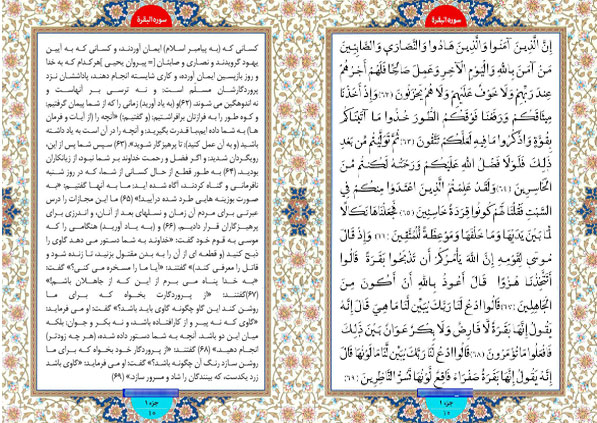 سورة البقرة
إِنَّ الَّذِينَ آمَنُوا وَالَّذِينَ هَادُوا وَالنَّصَارَىٰ وَالصَّابِئِينَ
مَنْ آمَنَ بِاللَّهِ وَالْيَوْمِ الْآخِرِ وَعَمِلَ صَالِحًا فَلَهُمْ أَجْرُهُمْ
عِندَ رَبِّهِمْ وَلَا خَوْفٌ عَلَيْهِمْ وَلَا هُمْ يَحْزَنُونَ ﴿٦٢﴾ وَإِذْ أَخَذْنَا
مِيثَاقَكُمْ وَرَفَعْنَا فَوْقَكُمُ الطُّورَ خُذُوا مَا آتَيْنَاكُم
بِقُوَّةٍ وَاذْكُرُوا مَا فِيهِ لَعَلَّكُمْ تَتَّقُونَ ﴿٦٣﴾ ثُمَّ تَوَلَّيْتُم مِّن بَعْدِ
ذَٰلِكَ فَلَوْلَا فَضْلُ اللَّهِ عَلَيْكُمْ وَرَحْمَتُهُ لَكُنتُم مِّنَ
الْخَاسِرِينَ ﴿٦٤﴾ وَلَقَدْ عَلِمْتُمُ الَّذِينَ اعْتَدَوْا مِنكُمْ فِي
السَّبْتِ فَقُلْنَا لَهُمْ كُونُوا قِرَدَةً خَاسِئِينَ ﴿٦٥﴾ فَجَعَلْنَاهَا نَكَالًا
لِّمَا بَيْنَ يَدَيْهَا وَمَا خَلْفَهَا وَمَوْعِظَةً لِّلْمُتَّقِينَ ﴿٦٦﴾ وَإِذْ قَالَ
مُوسَىٰ لِقَوْمِهِ إِنَّ اللَّهَ يَأْمُرُكُمْ أَن تَذْبَحُوا بَقَرَةً قَالُوا
أَتَتَّخِذُنَا هُزُوًا قَالَ أَعُوذُ بِاللَّهِ أَنْ أَكُونَ مِنَ
الْجَاهِلِينَ ﴿٦٧﴾ قَالُوا ادْعُ لَنَا رَبَّكَ يُبَيِّن لَّنَا مَا هِيَ قَالَ إِنَّهُ
يَقُولُ إِنَّهَا بَقَرَةٌ لَّا فَارِضٌ وَلَا بِكْرٌ عَوَانٌ بَيْنَ ذَٰلِكَ
فَافْعَلُوا مَا تُؤْمَرُونَ ﴿٦٨﴾ قَالُوا ادْعُ لَنَا رَبَّكَ يُبَيِّن لَّنَا مَا لَوْنُهَا قَالَ
إِنَّهُ يَقُولُ إِنَّهَا بَقَرَةٌ صَفْرَاءُ فَاقِعٌ لَّوْنُهَا تَسُرُّ النَّاظِرِينَ ﴿٦٩﴾
جزء ۱
سورة البقرة
کسانی که (به پیامبر اسلام) ایمان آوردند، و کسانی که به آیین
یهود گرویدند و نصاری و صابئان [= پیروان یحیی] هرکدام که به خدا
و روز بازپسین ایمان آورده، و کاری شایسته انجام دهند، پاداششان نزد
پروردگارشان مسلّم است؛ و نه ترسی بر آنهاست و
نه اندوهگین می شوند. (۶۲)و (به یاد آورید) زمانی را که از شما پیمان گرفتیم؛
و کوه طور را به فرازتان برافراشتیم، (و گفتیم:) «آنچه را (از آیات و فرمان
ها) به شما داده ایم،با قدرت بگیرید؛ و آنچه را در آن است به یاد داشته
باشید (و به آن عمل کنید)، تا پرهیزگار شوید». (۶۳) سپس شما پس از این،
رویگردان شدید؛ و اگر فضل و رحمت خداوند بر شما نبود، از زیانکاران
بودید. (۶۴) به طور قطع از حال کسانی از شما، که در روز شنبه
نافرمانی و گناه کردند، آگاه شده اید. ما به آنها گفتیم: «به
صورت بوزینه هایی طرد شده درآیید!» (۶۵) ما این مجازات را درس
عبرتی برای مردم آن زمان و نسلهای بعد از آنان، و اندرزی برای
پرهیزگاران قرار دادیم. (۶۶) و (به یاد آورید) هنگامی را که
موسی به قوم خود گفت: «خداوند به شما دستور می دهد گاوی را
ذبح کنید (و قطعه ای از آن را به بدن مقتول بزنید، تا زنده شود و
قاتل را معرفی کند)» گفتند: «آیا ما را مسخره می کنی؟» گفت:
«به خدا پناه می برم از این که از جاهلان باشم!»
(۶۷)گفتند: «از پروردگارت بخواه که برای ما
روشن کند این گاو چگونه گاوی باید باشد؟» گفت: او می فرماید:
«گاوی که نه پیر و از کارافتاده باشد، و نه بکر و جوان، بلکه
میان این دو باشد. آنچه به شما دستور داده شده، (هر چه زودتر)
انجام دهید.» (۶۸) گفتند: «از پروردگار خود بخواه که برای ما
روشن سازد رنگ آن چگونه باشد؟» گفت: او می فرماید: «گاوی باشد
زرد یکدست، که بینندگان را شاد و مسرور سازد. (۶۹)
جزء ۱